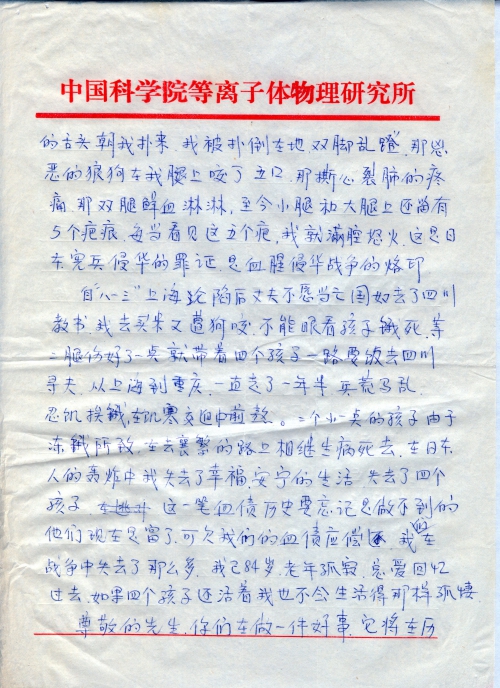 中国科学院等离子体物理研究所
的舌头朝我扑来,我被扑倒在地双脚乱蹬,那恶
恶的狼狗在我腿上咬了五口,那撕心裂肺的疼
痛,那双腿鲜血淋淋,至今小腿和大腿上还尚有
5个疤痕,每当看见这五个疤,我就满腔怒火,这是日
本宪兵侵华的罪证,是血腥侵华战争的烙印
自"八一三"上海沦陷后丈夫不愿当亡国奴去了四川
教书,我去买米又遭狗咬,不能眼看孩子饿死,等
腿伤好了一点就带着四个孩子一路要饭去四川
寻夫,从上海到重庆,一直走了一年半,兵荒马乱,
忍饥挨饿,在饥寒交迫中煎熬。二个小一点的孩子由于
冻饿所致,在去襄樊的路上相继生病死去,在日本
人的轰炸中我失去了幸福,安宁的生活,失去了四个
孩子 这一笔血债历史要忘记是做不到的
他们现在是富了,可欠我们的血债应偿还,我们在
战争中失去了那么多,我已84岁,老年孤寂,总爱回忆
过去,如果四个孩子还活着我也不会生活得那样孤悽
尊敬的先生,你们在做一件好事,它将在历